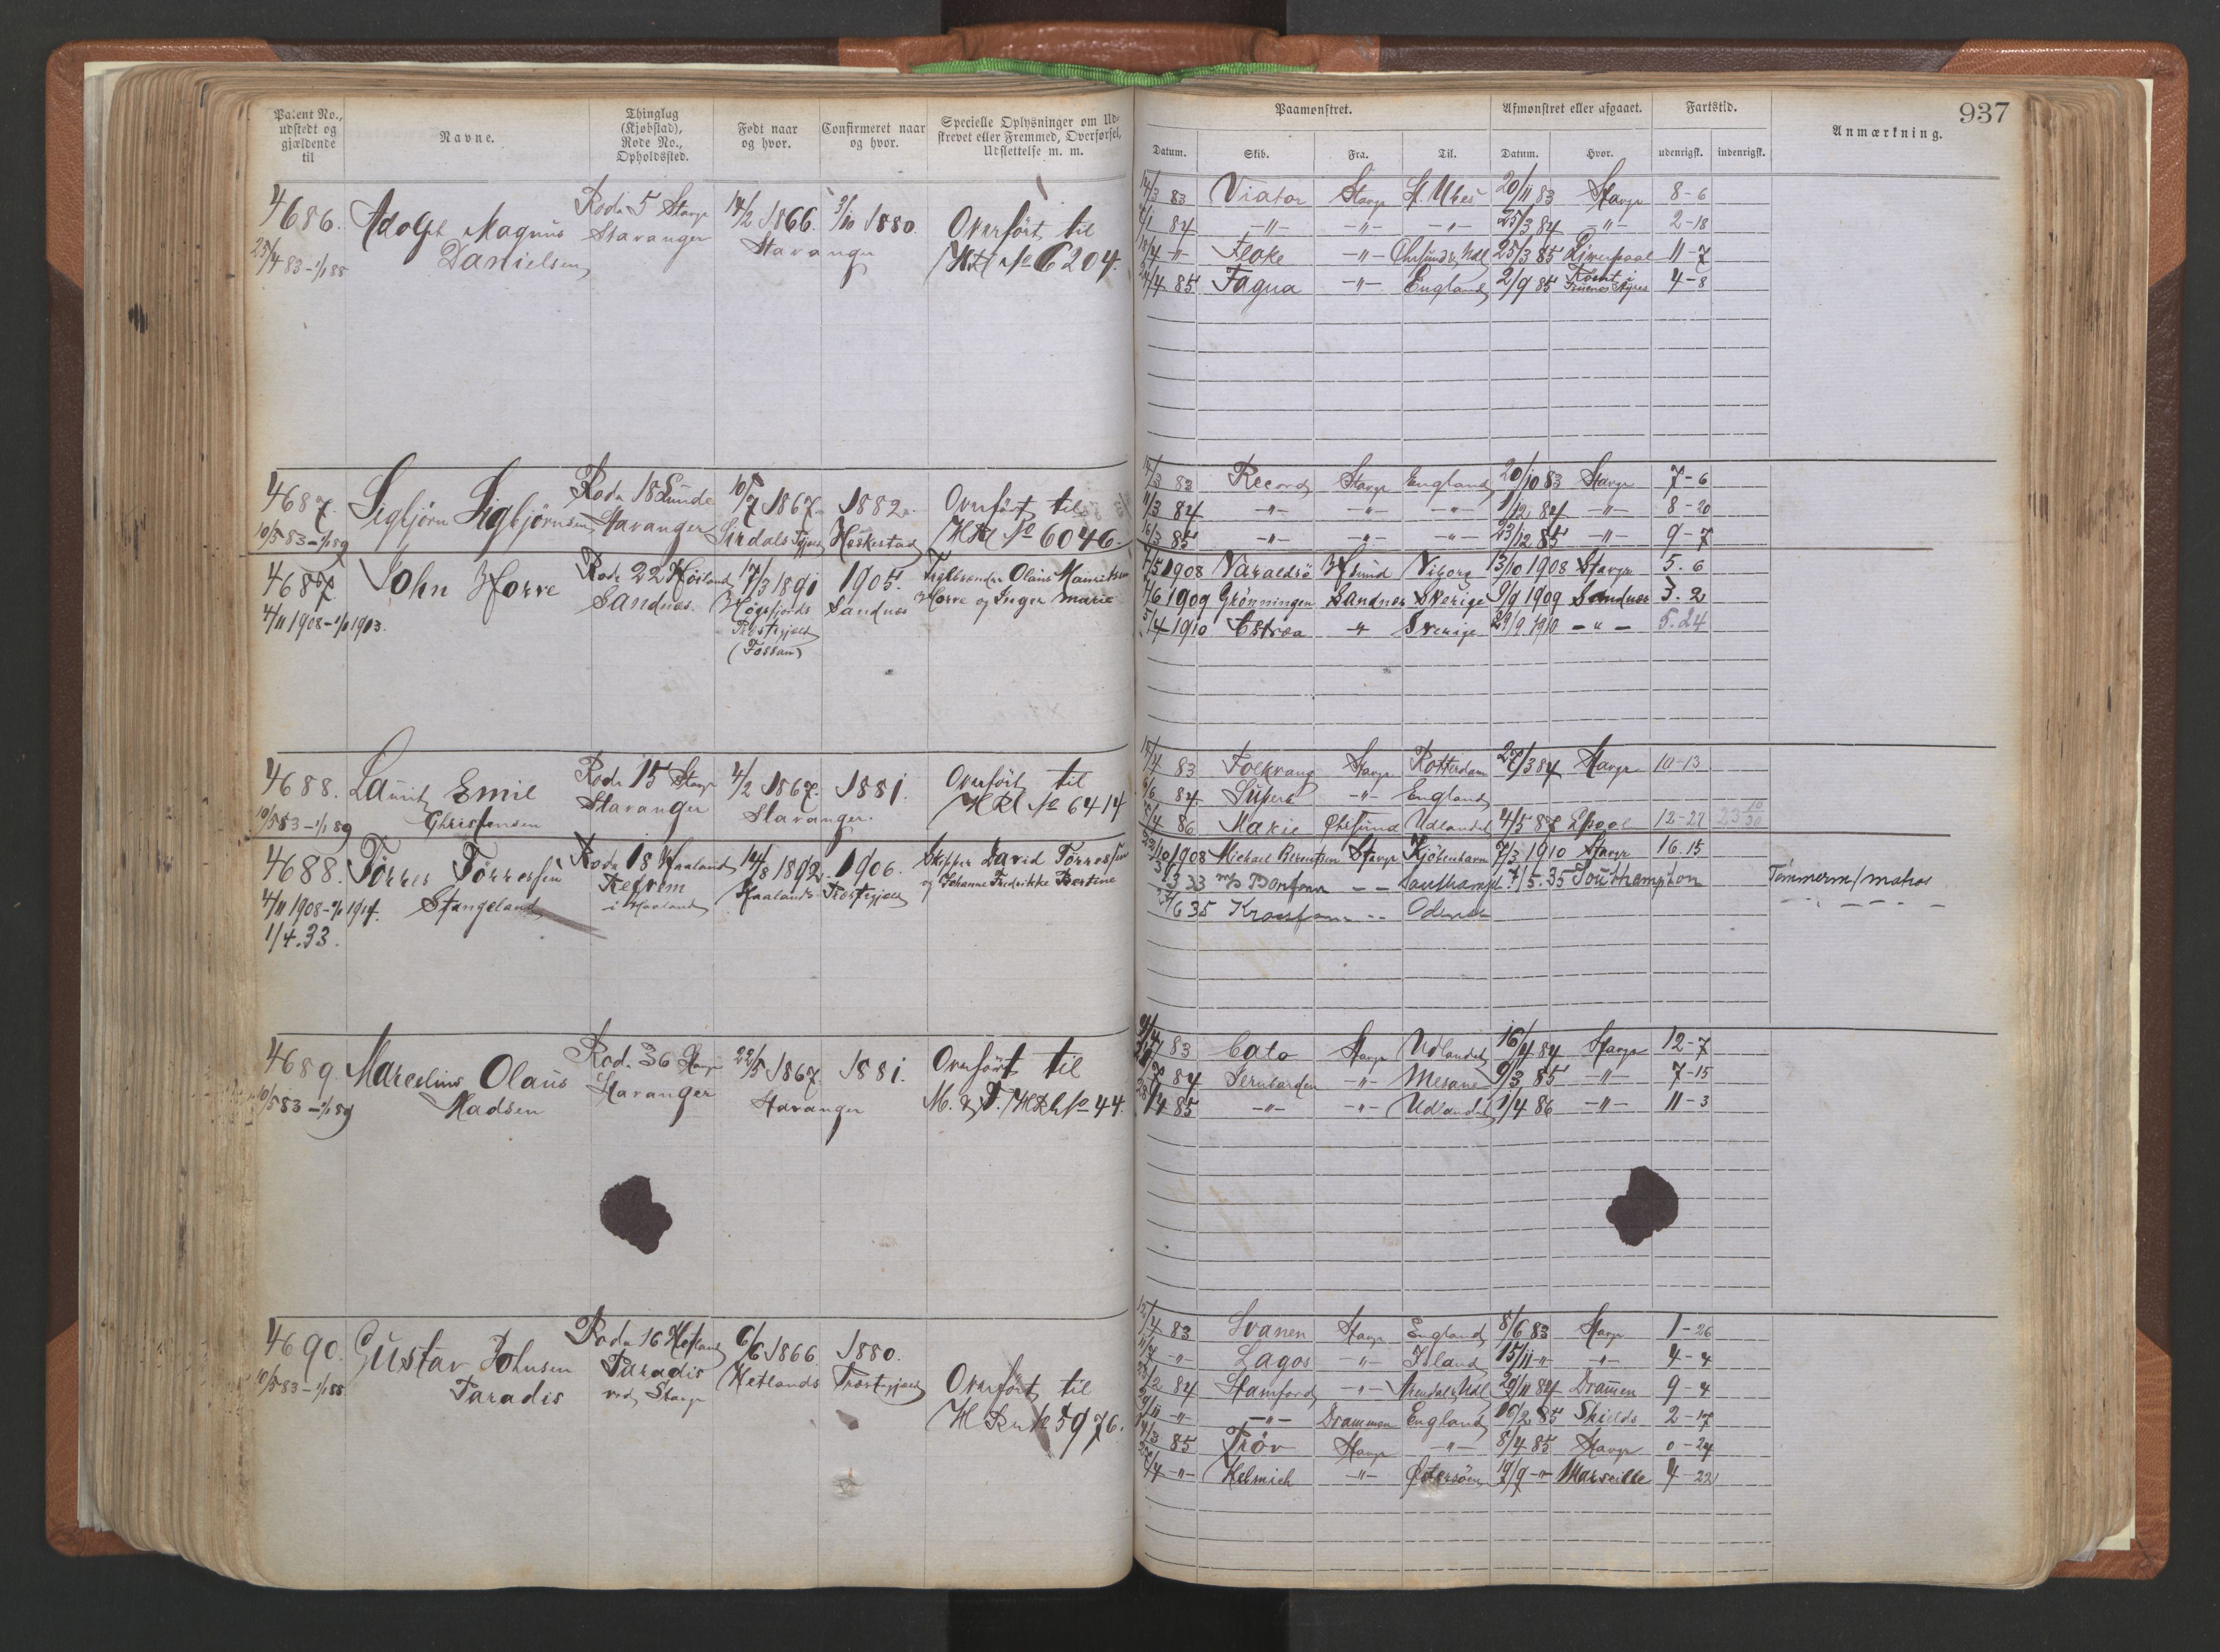 Patent No., udstedt og gjældende til
Navne.
Thinglag (Kjøbstad), Rode No., Opholdssted.
Født naar og hvor.
Confirmeret naar og hvor.
Specielle Oplysninger om Udskrevet eller Fremmed, Overførsel, Udslettelse m. m.
Paamønstret.
Afmønstret eller afgaaet.
Fartstid.
Anmærkning.
937
Datum.
Skib.
Fra.
Til.
Datum.
Hvor.
udenrigsk.
indenrigsk.
4686. Adolph Magnus Rode 5 Stavgr 14/2 1866. 3/10 1880. Overført til
23/4 83-1/1 88 Danielsen Stavanger Stavanger HRl No 6204.
14/3 83 Viator Stavgr St. Ubes 20/11 83 Stavgr 8-6
84 -"- -"- -"- 25/3 84 -"- 2-18
18/4 -"- Floke -"- Chrsund & Udl 25/3 85 Liverpool 11-7
4/4 85 Fagua -"- England 2/9 85 Rømt i Buenos Ayres 4-8
4687. Sigbjørn Sigbjørnsen Rode 18 Lunde 10/7 1867. 1882. Overført til
10/5 83-1/1 89 Stavanger Sirdals Heskestad HRl No 6046.
14/3 83 Record Stavgr England 20/10 83 Stavgr 7-6
11/3 84 -"- -"- -"- 1/12 84 -"- 8-20
16/3 85 -"- -"- -"- 23/12 85 -"- 9-7
4687. John Horve Rode 22 Høiland 17/3 1891 1905. Olaus
4/11 1908-1/1 1913. Sandnes. Høgsfjords Sandnes Horve og Inger Marie
Præstegjæld
(Fossan)
7/5 1908 Varaldsø Hsund Viborg 13/10 1908 Stavgr 5.6
4/6 1909 Grønningen Sandnes Sverige 9/9 1909 Sandnes 3.2
5/4 1910 Estrea -"- Sverige 29/9 1910 -"- 5.24
4688. Laurits Emil Rode 15 Stavgr 4/2 1867. 1881. Overført til
10/5 83-1/1 89 Christensen Stavanger Stavanger. HRl No 6414
15/4 83 Folkvang Stavgr Rotterdam 27/3 84 Stavgr 10-13
6/6 84 Superb -"- England
86 Marie Chrsund Udlandet 4/5 87 Lpool 12-27
4688. Tørres Tørressen Rode 18 Haaland 14/8 1892. 1906. Skipper David Tørressen
4/11 1908-1/1 1914. Stangeland i Haaland Haalands Præstegjæld og Johanne Fredrikke Bertine
1/4.33.
1908 Michael Berentsen Stavgr Kjøbenhavn 7/3 1910 Stavgr 16.15
33 m/s - - Southampt 7/5.35 Southampton Tømmerm/matros
6 35 - - Odense
4689. Marcelius Olaus Rode 36 Stavgr 22/5 1867. 1881. Overført til
10/5 83-1/1 89 Madsen Stavanger Stavanger M. & F. HRl No 44.
83 Cato Stavgr Udlandet 16/4 84 Stavgr 12-7
84 Jernbarden -"- Mesane 9/3 85 -"- 7-15
85 -"- -"- Udlandet 1/4 86 -"- 11-3
4690. Gustav Johnsen Rode 16 Hetland 6/6 1866 1880.
10/5 83-1/1 88 Paradis Paradis ved Stavgr Hetlands Præstegjæld Overført til
HRl No 5976.
12/4 83 Svanen Stavgr England 8/6 83 Stavgr 1-26
-"- Lagos -"- Island 15/11 -"- -"- 4-4
84 Stamford -"- Arendal & Udl 84 Drammen 9-4
-"- -"- Drammen England 16/2 85 Shields 2-17
14/3 85 Prøv Stavgr -"- 8/4 85 Stavgr 0-24
-"- Helmich -"- Østersøen 19/9 -"- Marseille 4-22